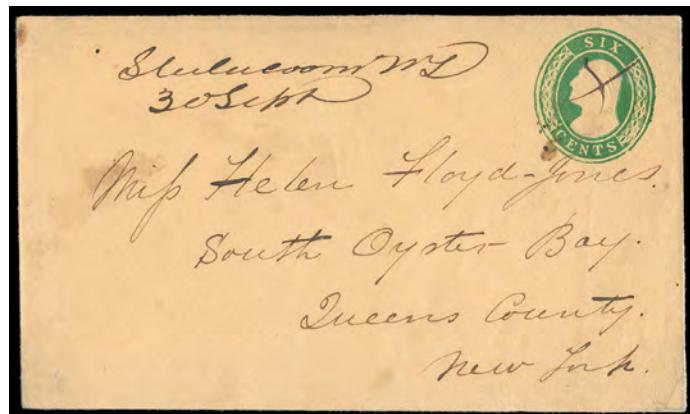 Steilacoom WT
30 Sept
SIX
CENTS
Miss Helen Floyd-Jones.
South Oyster Bay.
Queens County.
New York.